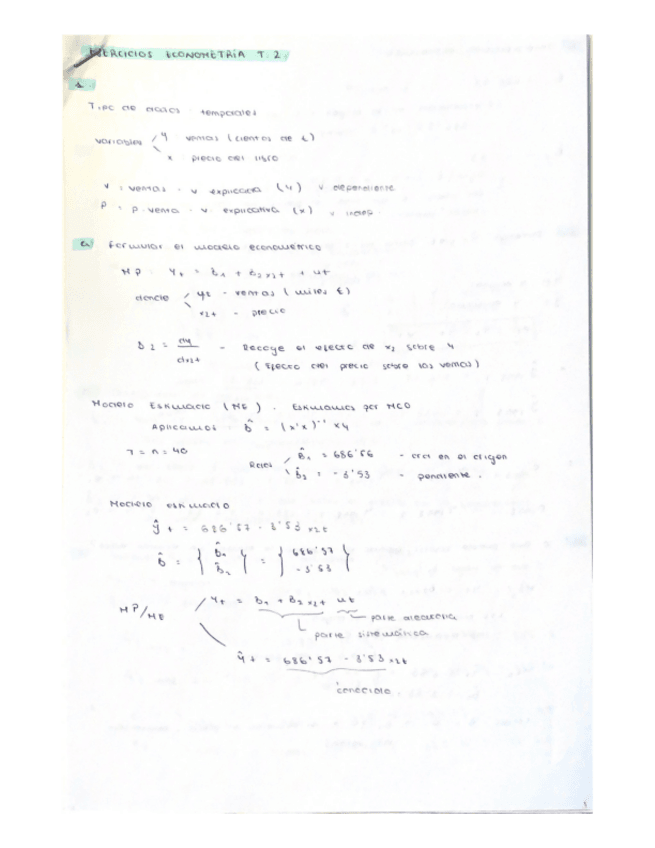 EJERCICIOS ECONOMETRÍA T.2
1.
Tipo de datos : temporales
variables y ventas (cientos de £)
x precio del libro
V : ventas - v explicada (y) v dependiente
P : P. venta - v. explicativa (x) v indep.
a) Formular el modelo econométrico
MP : Yt = B1 + B2 x2t + ut
donde yt - ventas (miles €)
x2t - precio
B2 = dy / dx2t - Recoge el efecto de x2 sobre y
(Efecto del precio sobre las ventas)
Modelo Estimado (ME). Estimamos por MCO
Aplicamos : B̂ = (x'x)⁻¹ xy
T = n = 40
B̂1 = 686'56 - ord en el origen
B̂2 = -3'53 - pendiente.
Modelo estimado
ŷt = 686'57 - 3'53 x2t
B̂ = { B̂1 B̂2 } = { 686'57 -3'53 }
MP/ME Yt = B1 + B2 x2t ut
parte aleatoria
parte sistemática
ŷt = 686'57 - 3'53 x2t
conocido
1